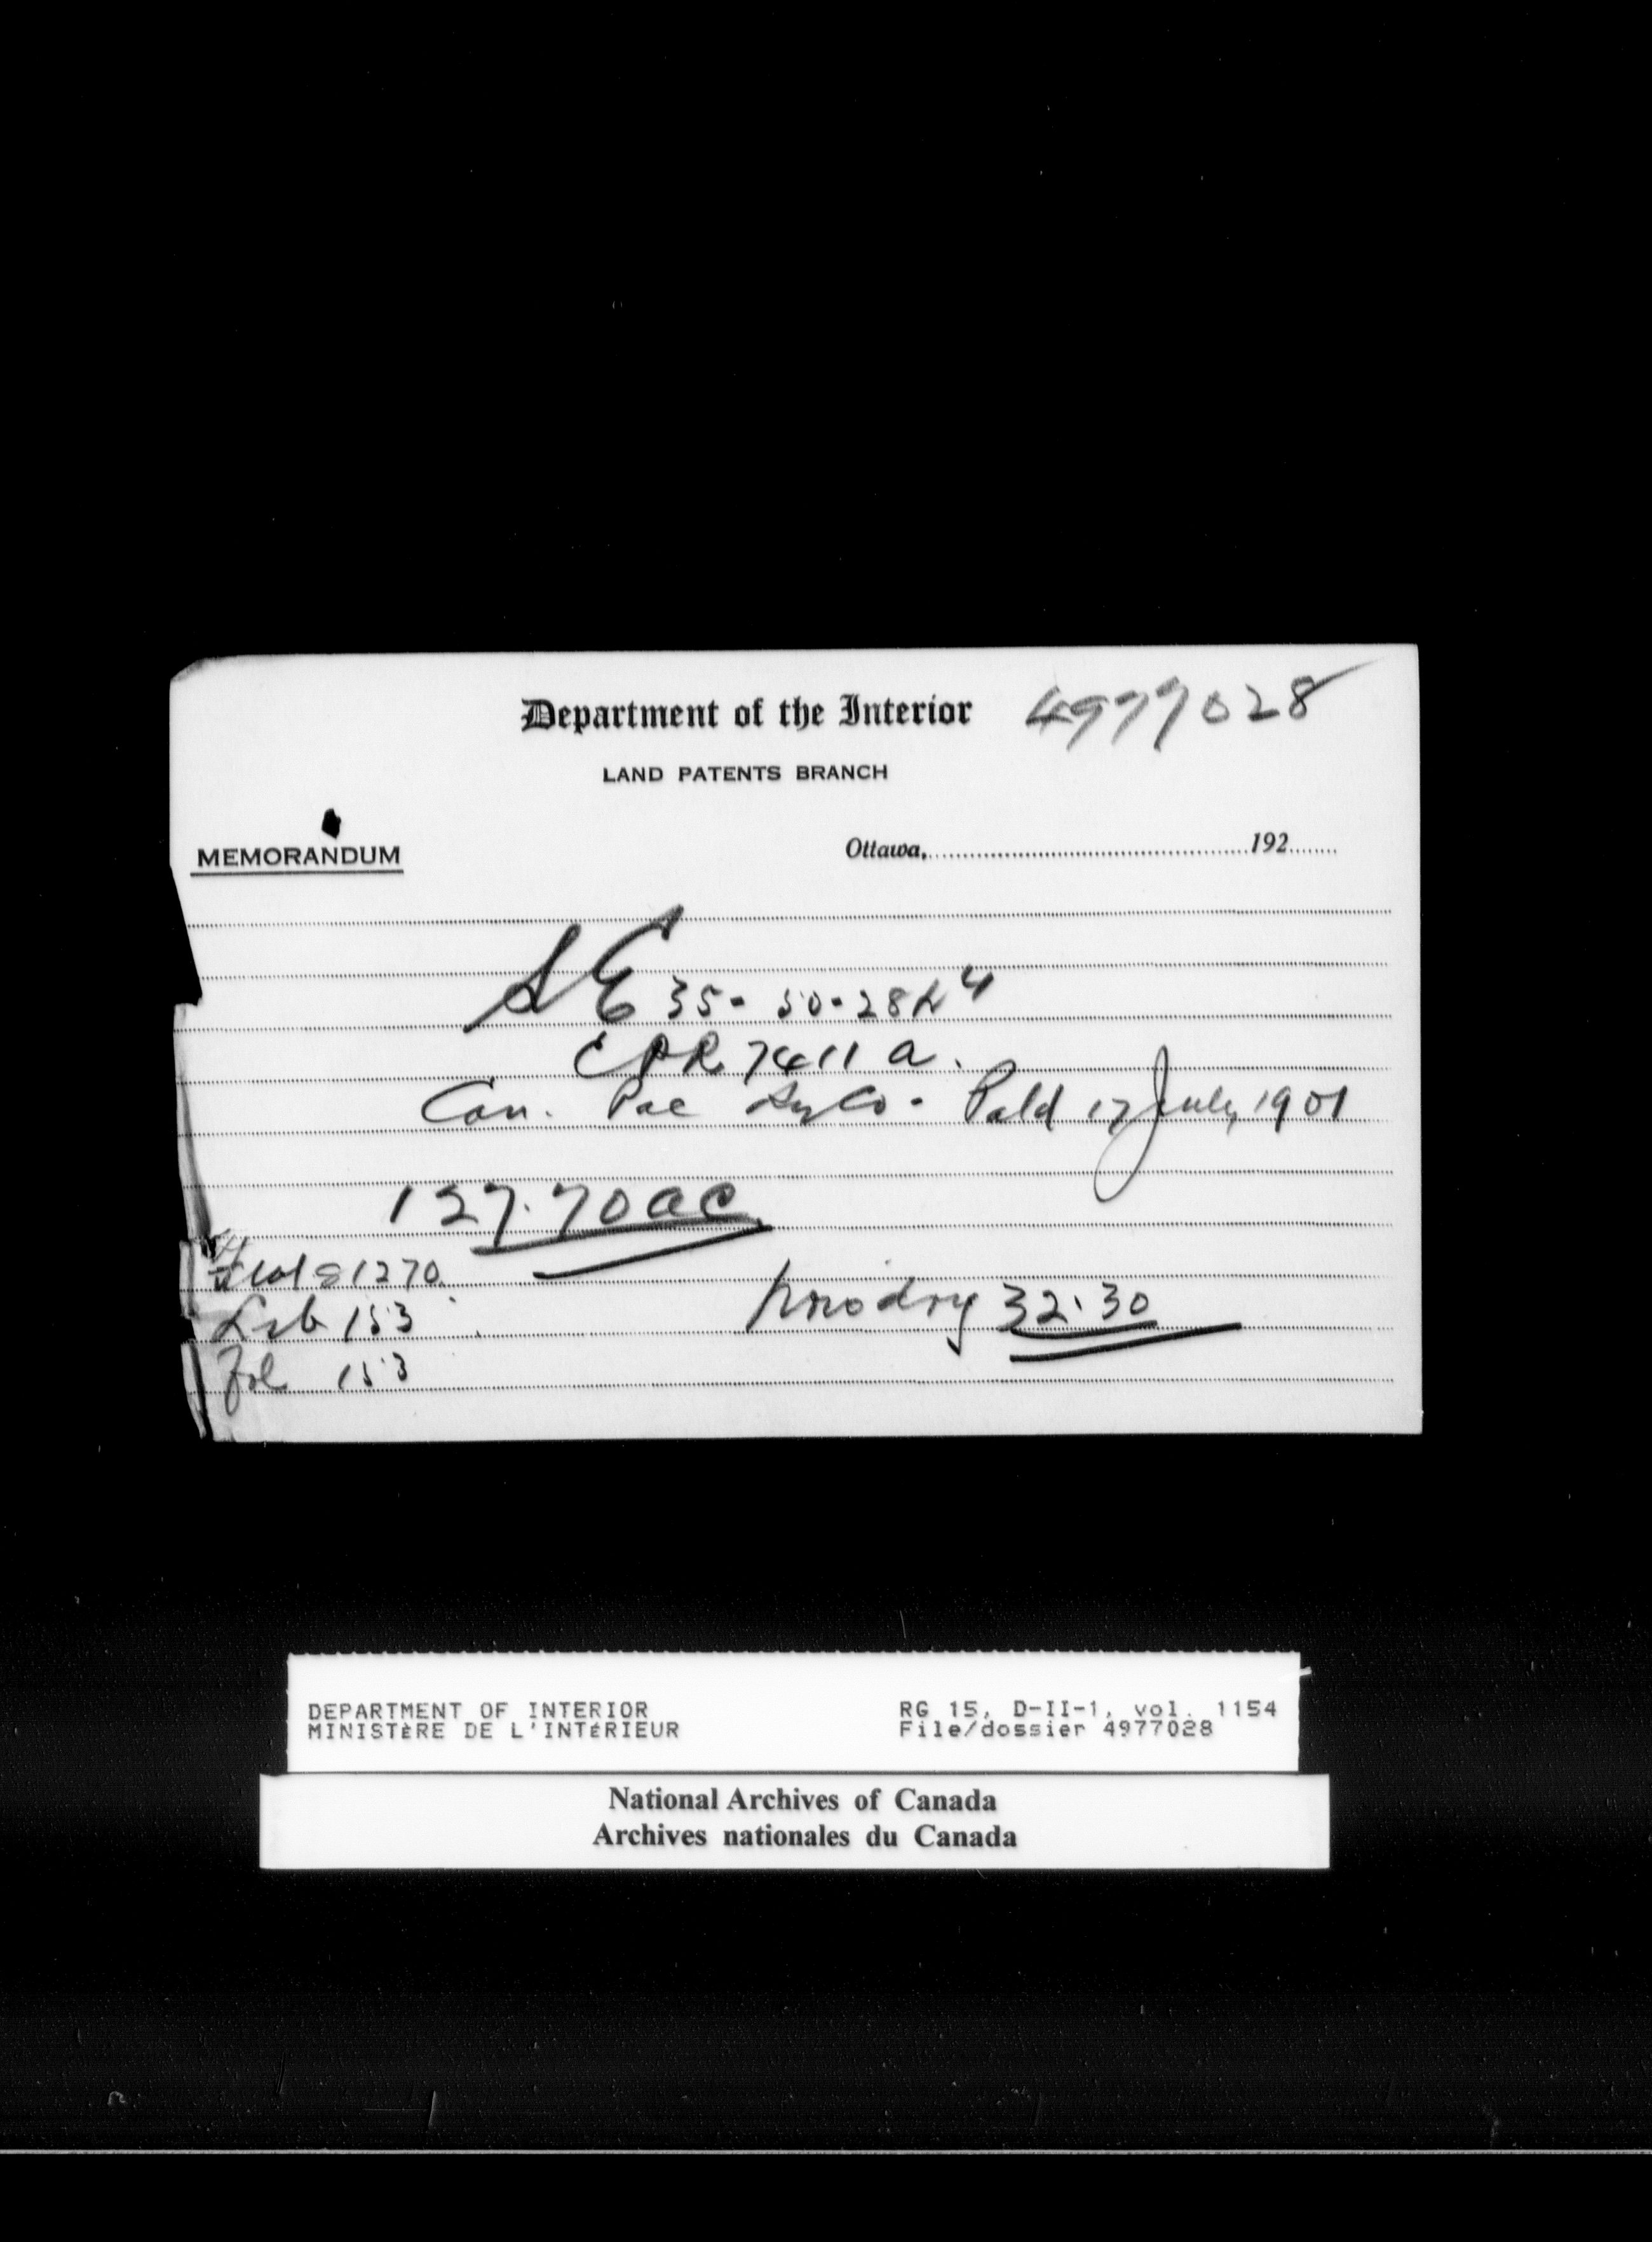 Department of the Interior 4977028
LAND PATENTS BRANCH
MEMORANDUM
Ottawa, 192
SE 35 - 50 - 28 W 4
CPR 7411 a.
Can. Pac Ry Co. Patd 17 July, 1901
127.70 ac
1270
Lib 153
Fol 153
32.30
DEPARTMENT OF INTERIOR RG 15, D-II-1, vol. 1154
MINISTÈRE DE L'INTÉRIEUR File/dossier 4977028
National Archives of Canada
Archives nationales du Canada